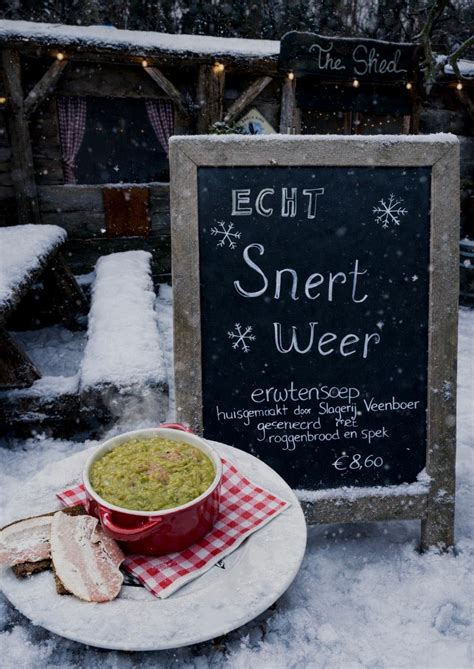 The Shed
ECHT
Snert
Weer
erwtensoep
huisgemaakt door Slagerij Veenboer
geserveerd met
roggenbrood en spek
€8,60